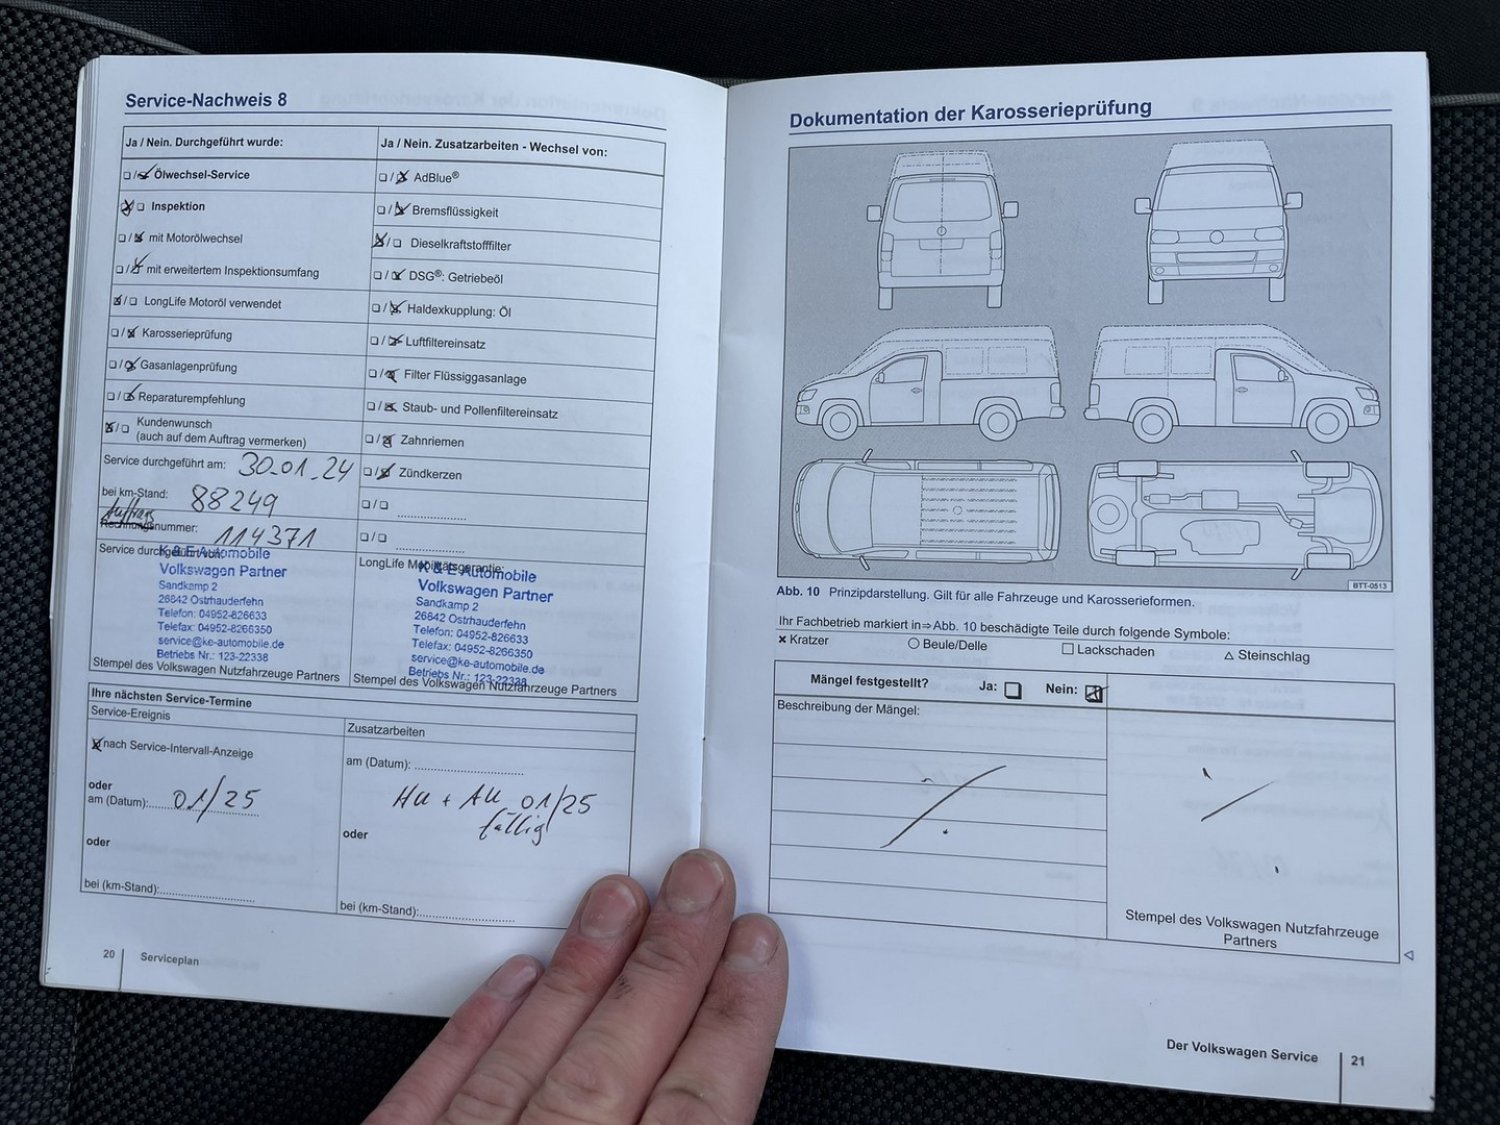 Service-Nachweis 8
Ja / Nein. Durchgeführt wurde:
Ölwechsel-Service
Inspektion
mit Motorölwechsel
mit erweitertem Inspektionsumfang
LongLife Motoröl verwendet
Karosserieprüfung
Gasanlagenprüfung
Reparaturempfehlung
Kundenwunsch
(auch auf dem Auftrag vermerken)
Service durchgeführt am: 30.01.24
bei km-Stand: 88249
Auftrags
Rechnungsnummer: 114371
Service durchgeführt von:
K & E Automobile
Volkswagen Partner
Sandkamp 2
26842 Ostrhauderfehn
Telefon: 04952-826633
Telefax: 04952-8266350
service@ke-automobile.de
Betriebs Nr.: 123-22338
Stempel des Volkswagen Nutzfahrzeuge Partners
Ja / Nein. Zusatzarbeiten - Wechsel von:
AdBlue®
Bremsflüssigkeit
Dieselkraftstofffilter
DSG®: Getriebeöl
Haldexkupplung: Öl
Luftfiltereinsatz
Filter Flüssiggasanlage
Staub- und Pollenfiltereinsatz
Zahnriemen
Zündkerzen
LongLife Mobilitätsgarantie:
K & E Automobile
Volkswagen Partner
Sandkamp 2
26842 Ostrhauderfehn
Telefon: 04952-826633
Telefax: 04952-8266350
service@ke-automobile.de
Betriebs Nr.: 123-22338
Stempel des Volkswagen Nutzfahrzeuge Partners
Ihre nächsten Service-Termine
Service-Ereignis
nach Service-Intervall-Anzeige
oder
am (Datum): 01/25
oder
bei (km-Stand):
Zusatzarbeiten
am (Datum):
HU + AU 01/25
fällig
oder
bei (km-Stand):
20 Serviceplan
Dokumentation der Karosserieprüfung
BTT-0513
Abb. 10 Prinzipdarstellung. Gilt für alle Fahrzeuge und Karosserieformen.
Ihr Fachbetrieb markiert in⇒Abb. 10 beschädigte Teile durch folgende Symbole:
× Kratzer ○ Beule/Delle □ Lackschaden △ Steinschlag
Mängel festgestellt? Ja: Nein:
Beschreibung der Mängel:
Stempel des Volkswagen Nutzfahrzeuge
Partners
Der Volkswagen Service 21